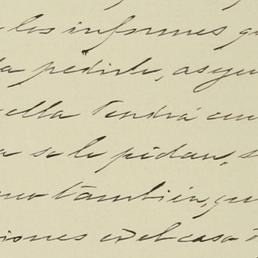 los informes qu
da pedirle, asegu
ella tendrá cu
a se le pidan, s
mo también, qu
iones en el caso